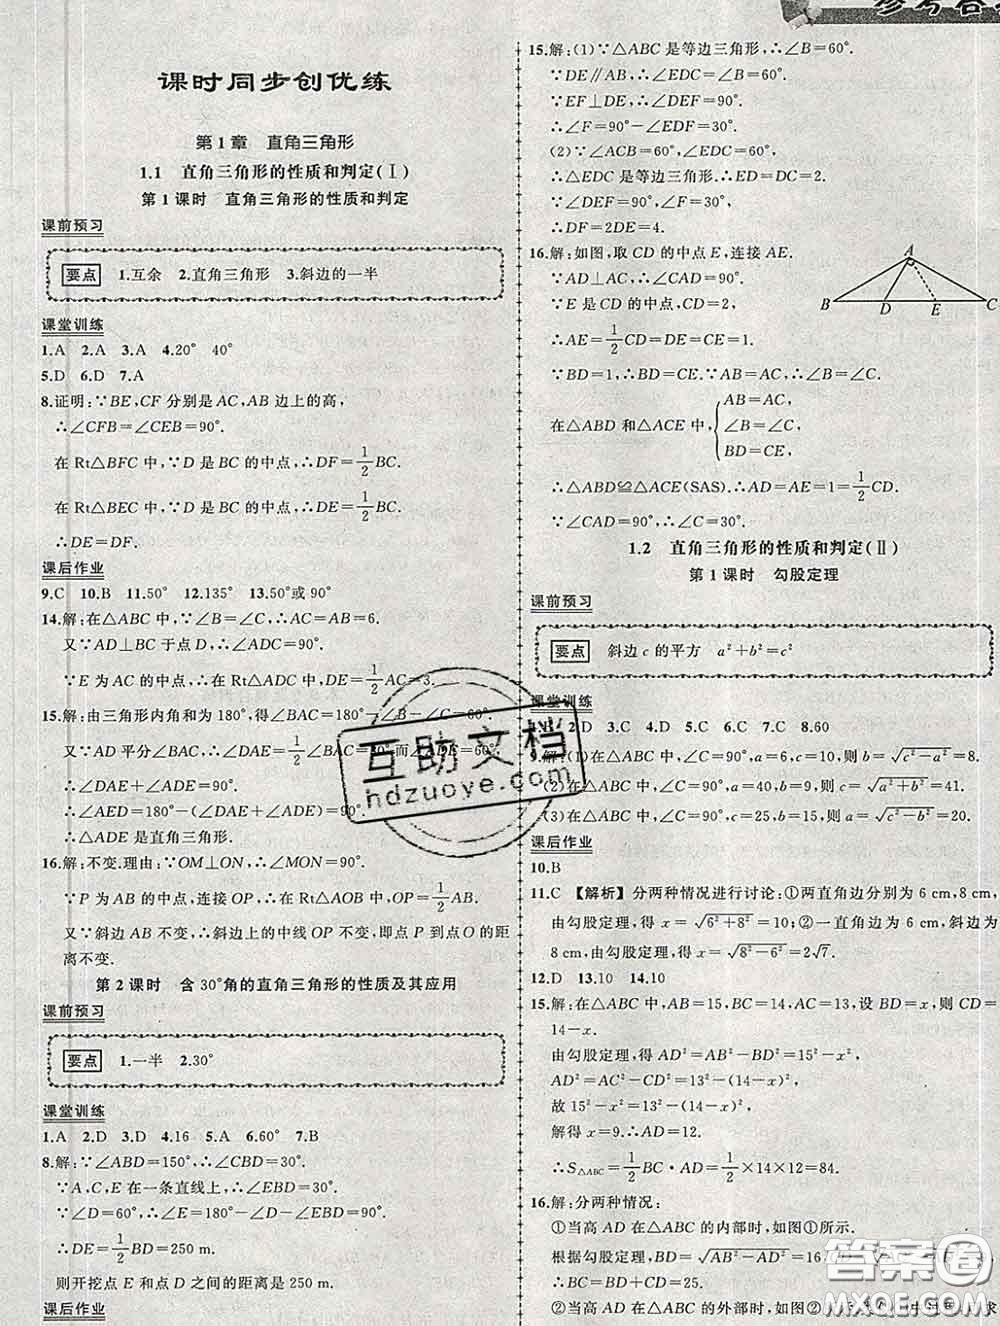 参考答案
课时同步创优练
第1章 直角三角形
1.1 直角三角形的性质和判定(Ⅰ)
第1课时 直角三角形的性质和判定
课前预习
要点 1.互余 2.直角三角形 3.斜边的一半
课堂训练
1.A 2.A 3.A 4.20° 40°
5.D 6.D 7.A
8.证明:∵BE,CF 分别是 AC,AB 边上的高,
∴∠CFB=∠CEB=90°.
在 Rt△BFC 中,∵D 是 BC 的中点,∴DF=1/2BC.
在 Rt△BEC 中,∵D 是 BC 的中点,∴DE=1/2BC.
∴DE=DF.
课后作业
9.C 10.B 11.50° 12.135° 13.50°或 90°
14.解:在△ABC 中,∵∠B=∠C,∴AC=AB=6.
又∵AD⊥BC 于点 D,∴∠ADC=90°.
∵E 为 AC 的中点,∴在 Rt△ADC 中,DE=1/2AC=3.
15.解:由三角形内角和为 180°,得∠BAC=180°-∠B-∠C=60°.
又∵AD 平分∠BAC,∴∠DAE=1/2∠BAC=30°,而∠ADE=60°,
∴∠DAE+∠ADE=90°.
∴∠AED=180°-(∠DAE+∠ADE)=90°.
∴△ADE 是直角三角形.
16.解:不变.理由:∵OM⊥ON,∴∠MON=90°.
∵P 为 AB 的中点,连接 OP,∴在 Rt△AOB 中,OP=1/2AB.
又∵斜边 AB 不变,∴斜边上的中线 OP 不变,即点 P 到点 O 的距
离不变.
第2课时 含 30°角的直角三角形的性质及其应用
课前预习
要点 1.一半 2.30°
课堂训练
1.A 2.D 3.D 4.16 5.A 6.60° 7.B
8.解:∵∠ABD=150°,∴∠CBD=30°.
∵A,C,E 在一条直线上,∴∠EBD=30°.
∵∠D=60°,∴∠E=180°-∠D-∠EBD=90°.
∴DE=1/2BD=250 m.
则开挖点 E 和点 D 之间的距离是 250 m.
课后作业
15.解:(1)∵△ABC 是等边三角形,∴∠B=60°.
∵DE∥AB,∴∠EDC=∠B=60°.
∵EF⊥DE,∴∠DEF=90°.
∴∠F=90°-∠EDF=30°.
(2)∵∠ACB=60°,∠EDC=60°,
∴△EDC 是等边三角形.∴ED=DC=2.
∵∠DEF=90°,∠F=30°,
∴DF=2DE=4.
16.解:如图,取 CD 的中点 E,连接 AE.
∵AD⊥AC,∴∠CAD=90°.
∵E 是 CD 的中点,
∴AE=1/2CD=DE=CE=1.
∵BD=1,∴BD=CE.∵AB=AC,∴∠B=∠C.
在△ABD 和△ACE 中,{AB=AC, ∠B=∠C, BD=CE,
∴△ABD≌△ACE(SAS).∴AD=AE=1=1/2CD.
∵∠CAD=90°,∴∠C=30°.
A
B D E C
1.2 直角三角形的性质和判定(Ⅱ)
第1课时 勾股定理
课前预习
要点 斜边 c 的平方 a²+b²=c²
课堂训练
2.D 3.C 4.D 5.C 6.C 7.C 8.60
9.解:(1)在△ABC 中,∠C=90°,a=6,c=10,则 b=√(c²-a²)=8.
(2)在△ABC 中,∠C=90°,a=40,b=9,则 c=√(a²+b²)=41.
(3)在△ABC 中,∠C=90°,c=25,b=15,则 a=√(c²-b²)=20.
课后作业
10.B
11.C 【解析】分两种情况进行讨论:①两直角边分别为 6 cm,8 cm,
由勾股定理,得 x=√(6²+8²)=10;②一直角边为 6 cm,斜边为
8 cm,由勾股定理,得 x=√(8²-6²)=2√7.
12.D 13.10 14.10
15.解:在△ABC 中,AB=15,BC=14,AC=13,设 BD=x,则 CD=
14-x.
由勾股定理,得 AD²=AB²-BD²=15²-x²,
AD²=AC²-CD²=13²-(14-x)²,
故 15²-x²=13²-(14-x)².
解得 x=9.∴AD=12.
∴S△ABC=1/2BC·AD=1/2×14×12=84.
16.解:分两种情况:
①当高 AD 在△ABC 的内部时,如图①所示.
根据勾股定理,BD=√(AB²-AD²)=16,
∴BC=BD+CD=25.
②当高 AD 在△ABC 的外部时,如图②
互助文档
hdzuoye.com
答案圈
MXQE.COM